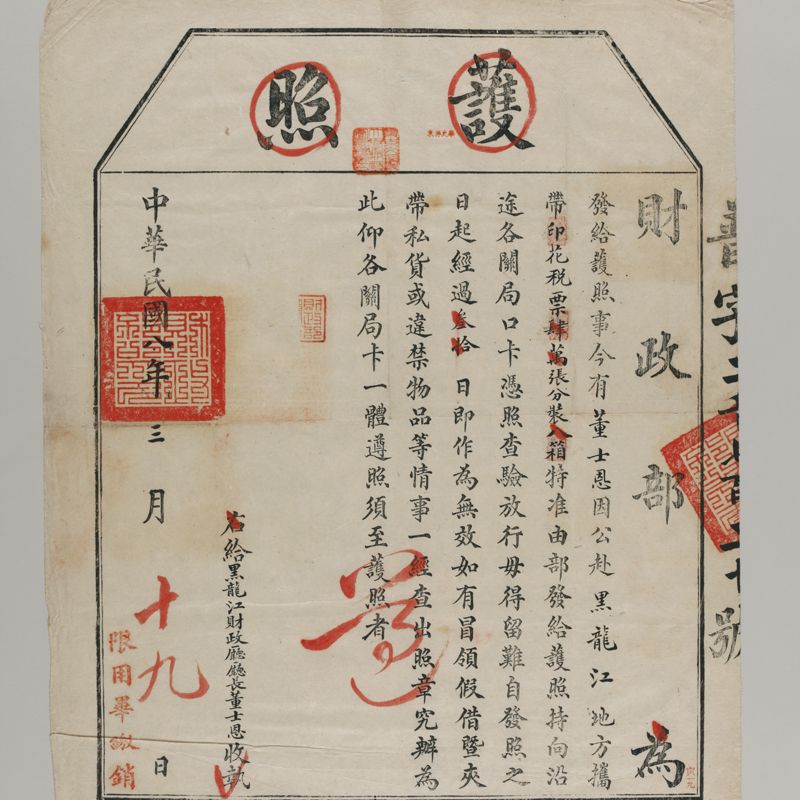 護照
財政部為
發給護照事今有董士恩因公赴黑龍江地方攜
帶印花稅票肆萬張分裝入箱特准由部發給護照持向沿
途各關局口卡憑照查驗放行毋得留難自發照之
日起經過叁拾日即作為無效如有冒領假借暨夾
帶私貨或違禁物品等情事一經查出照章究辦為
此仰各關局卡一體遵照須至護照者
遵
右給黑龍江財政廳廳長董士恩收執
中華民國八年三月十九日
限用畢繳銷
財政部